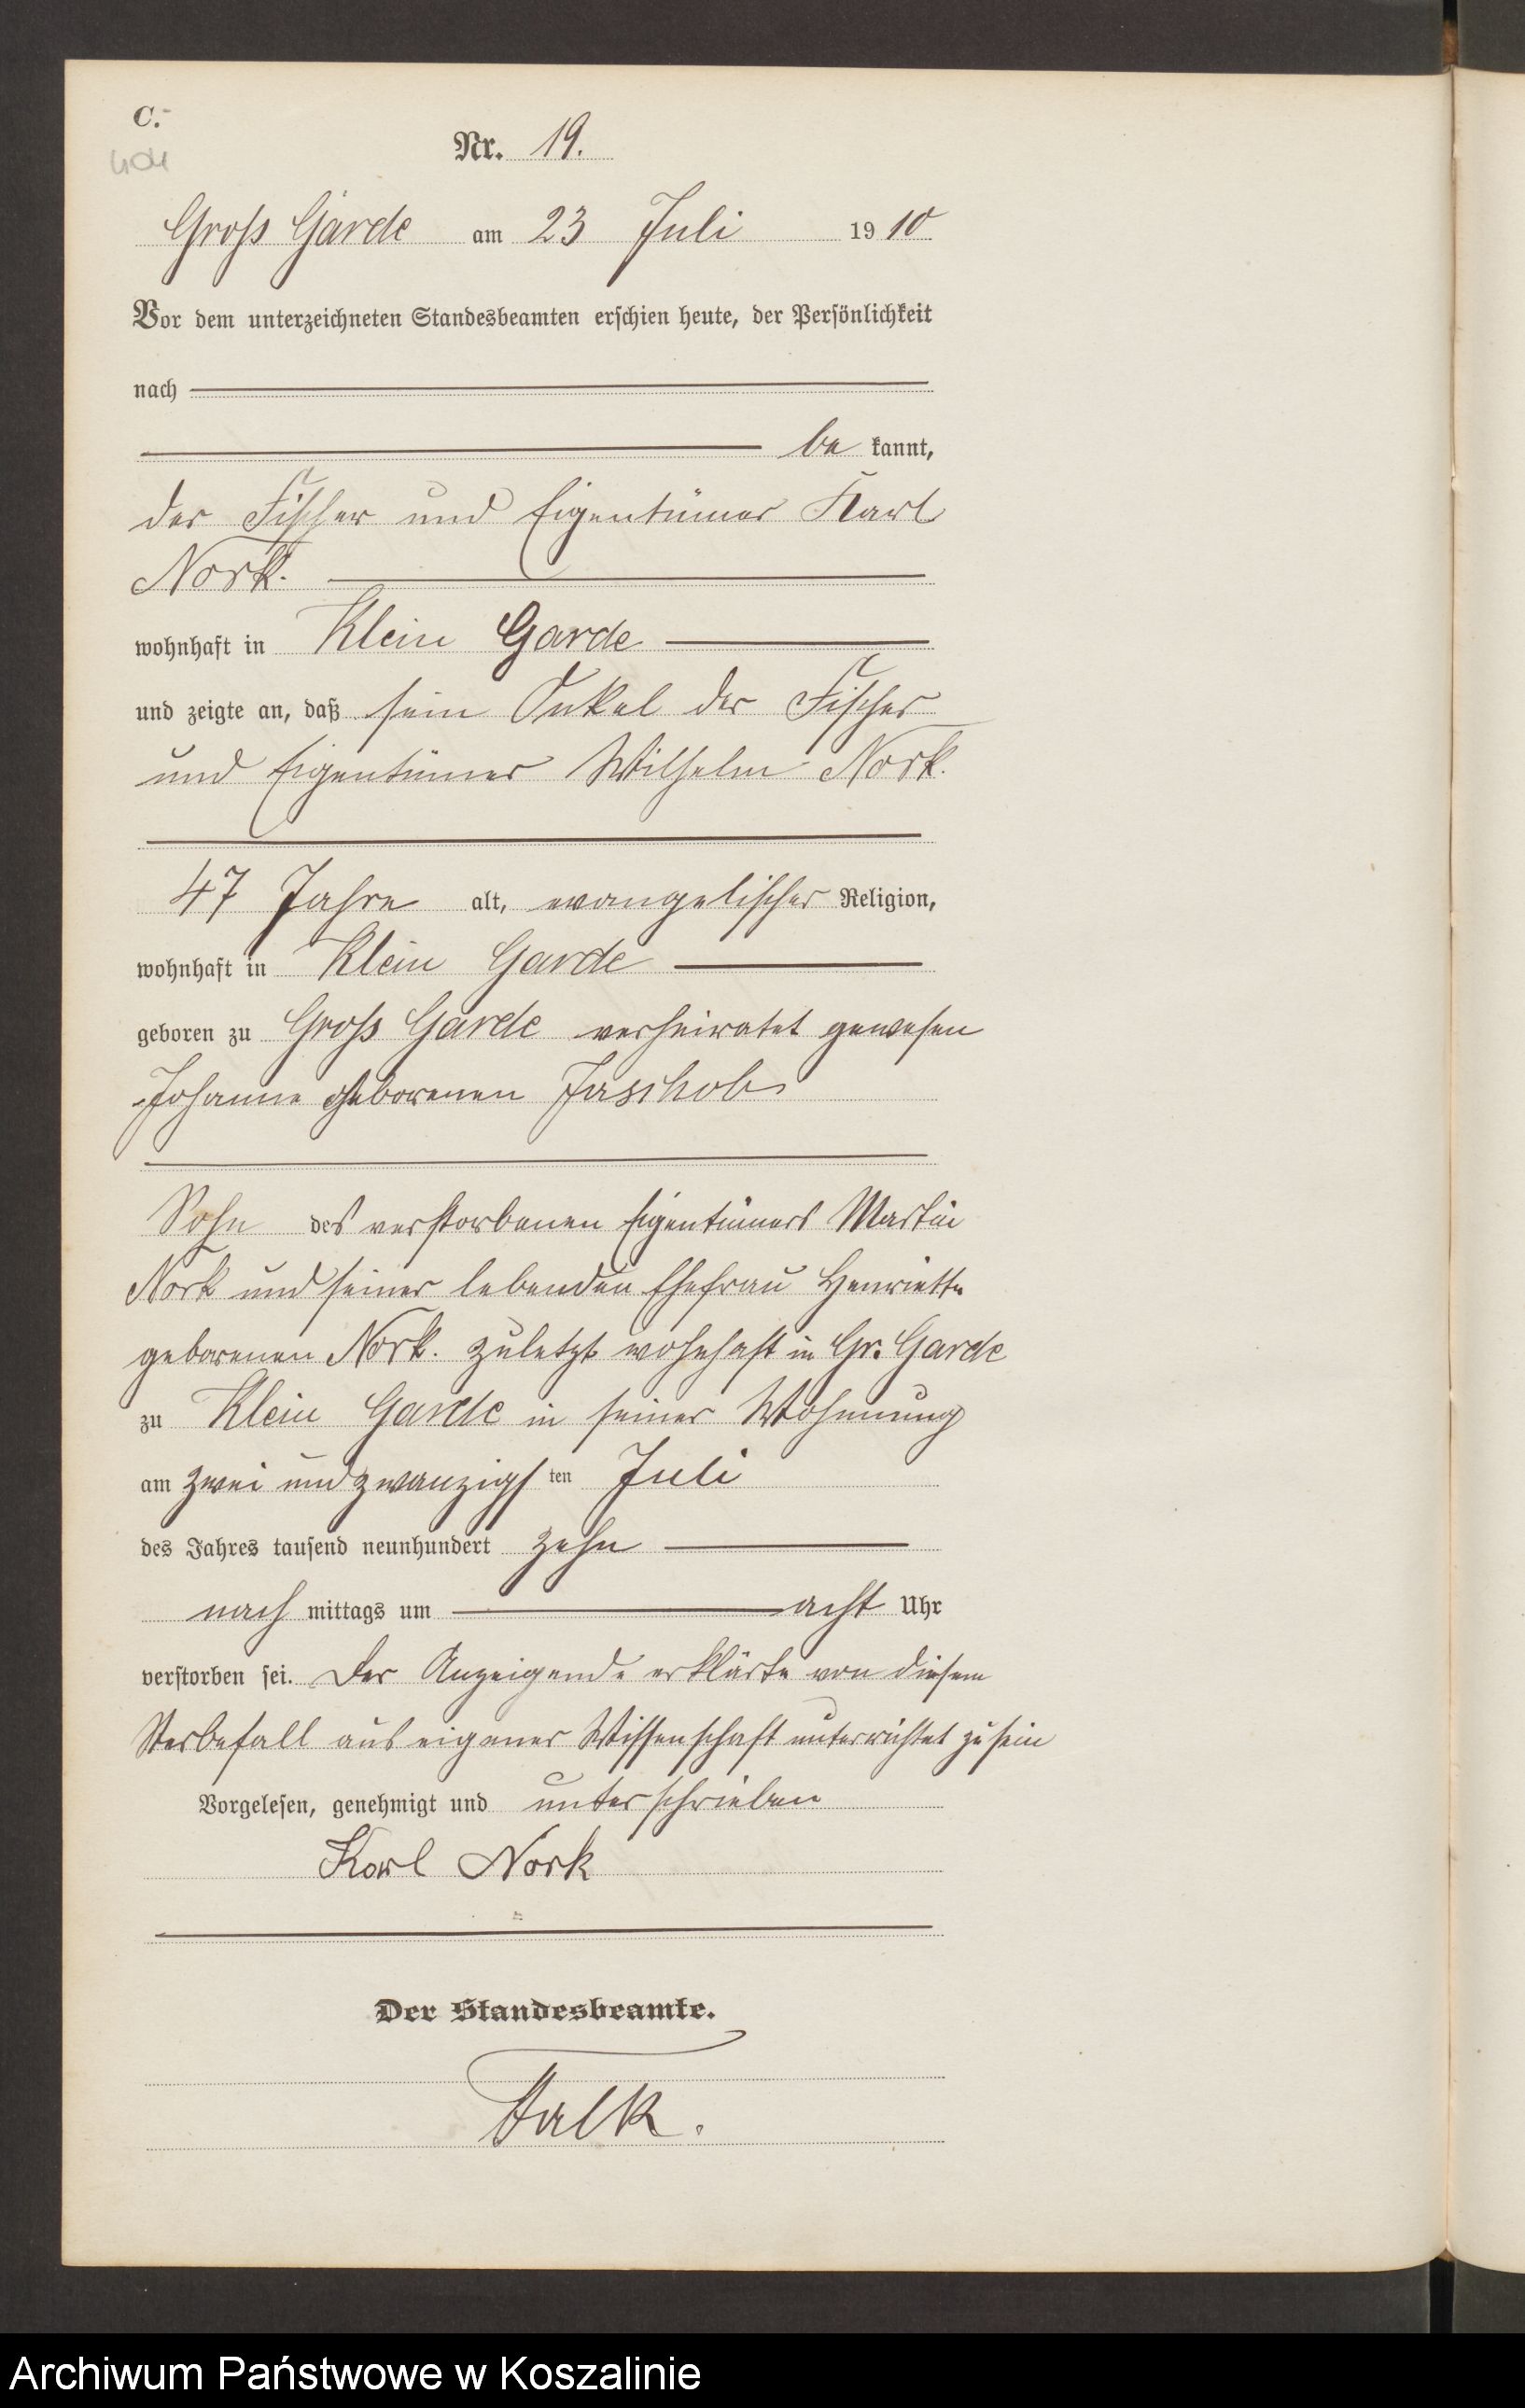 C.
404
Nr. 19.
Gross Garde am 23 Juli 1910
Vor dem unterzeichneten Standesbeamten erschien heute, der Persönlichkeit
nach
be kannt,
der Fischer und Eigentümer Karl
Nork.
wohnhaft in Klein Garde
und zeigte an, daß sein Onkel der Fischer
und Eigentümer Wilhelm Nork.
47 Jahre alt, evangelischer Religion,
wohnhaft in Klein Garde
geboren zu Gross Garde verheiratet gewesen
Johanne geborenen Jaschob
Sohn des verstorbenen Eigentümers Martin
Nork und seiner lebenden Ehefrau Henriette
geborenen Nork. zuletzt wohnhaft in Gr. Garde
zu Klein Garde in seiner Wohnung
am zwei und zwanzigsten Juli
des Jahres tausend neunhundert zehn
nach mittags um acht Uhr
verstorben sei. Der Anzeigende erklärte von diesem
Sterbefall aus eigener Wissenschaft unterrichtet zu sein
Vorgelesen, genehmigt und unterschrieben
Karl Nork
Der Standesbeamte.
Falk.
Archiwum Państwowe w Koszalinie